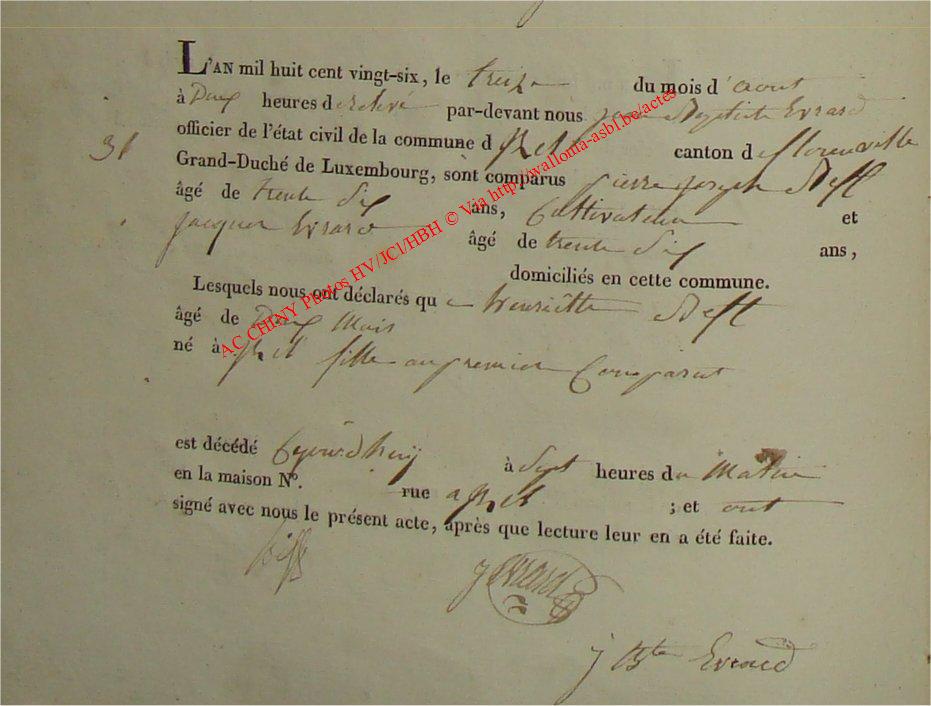 L'AN mil huit cent vingt-six, le treize du mois d'aout
à Deux heures de relevé par-devant nous jean Baptiste Evrard
31 officier de l'état civil de la commune d canton de florenville
Grand-Duché de Luxembourg, sont comparus pierre joseph
âgé de trente Six ans, Cultivateur et
jacques Evrard âgé de trente Six ans,
domiciliés en cette commune.
Lesquels nous ont déclarés que henriette
âgé de Deux Mois
né à fille au premier Comparut
est décédé à Sept heures du Matin
en la maison N°. rue a ; et ont
signé avec nous le présent acte, après que lecture leur en a été faite.
j Evrard
j Bte Evrard
AC CHINY Photos HV/JCl/HBH © Via http://wallonia-asbl.be/actes